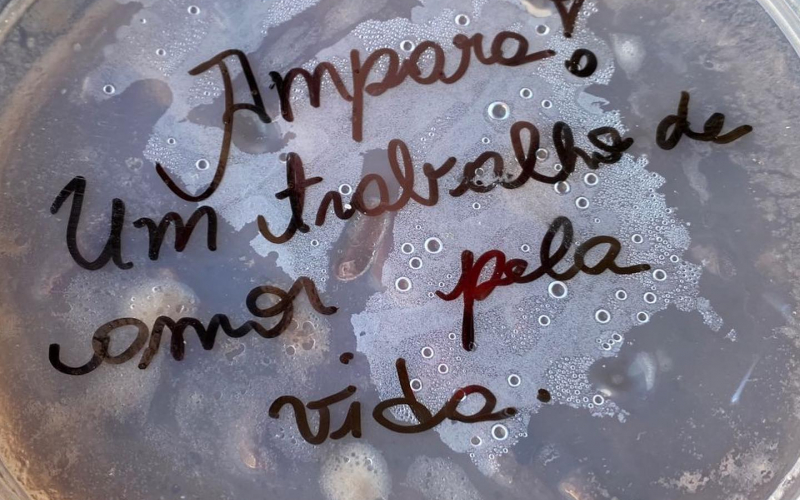 Ampara!
Um trabalho de
amor pela
vida.